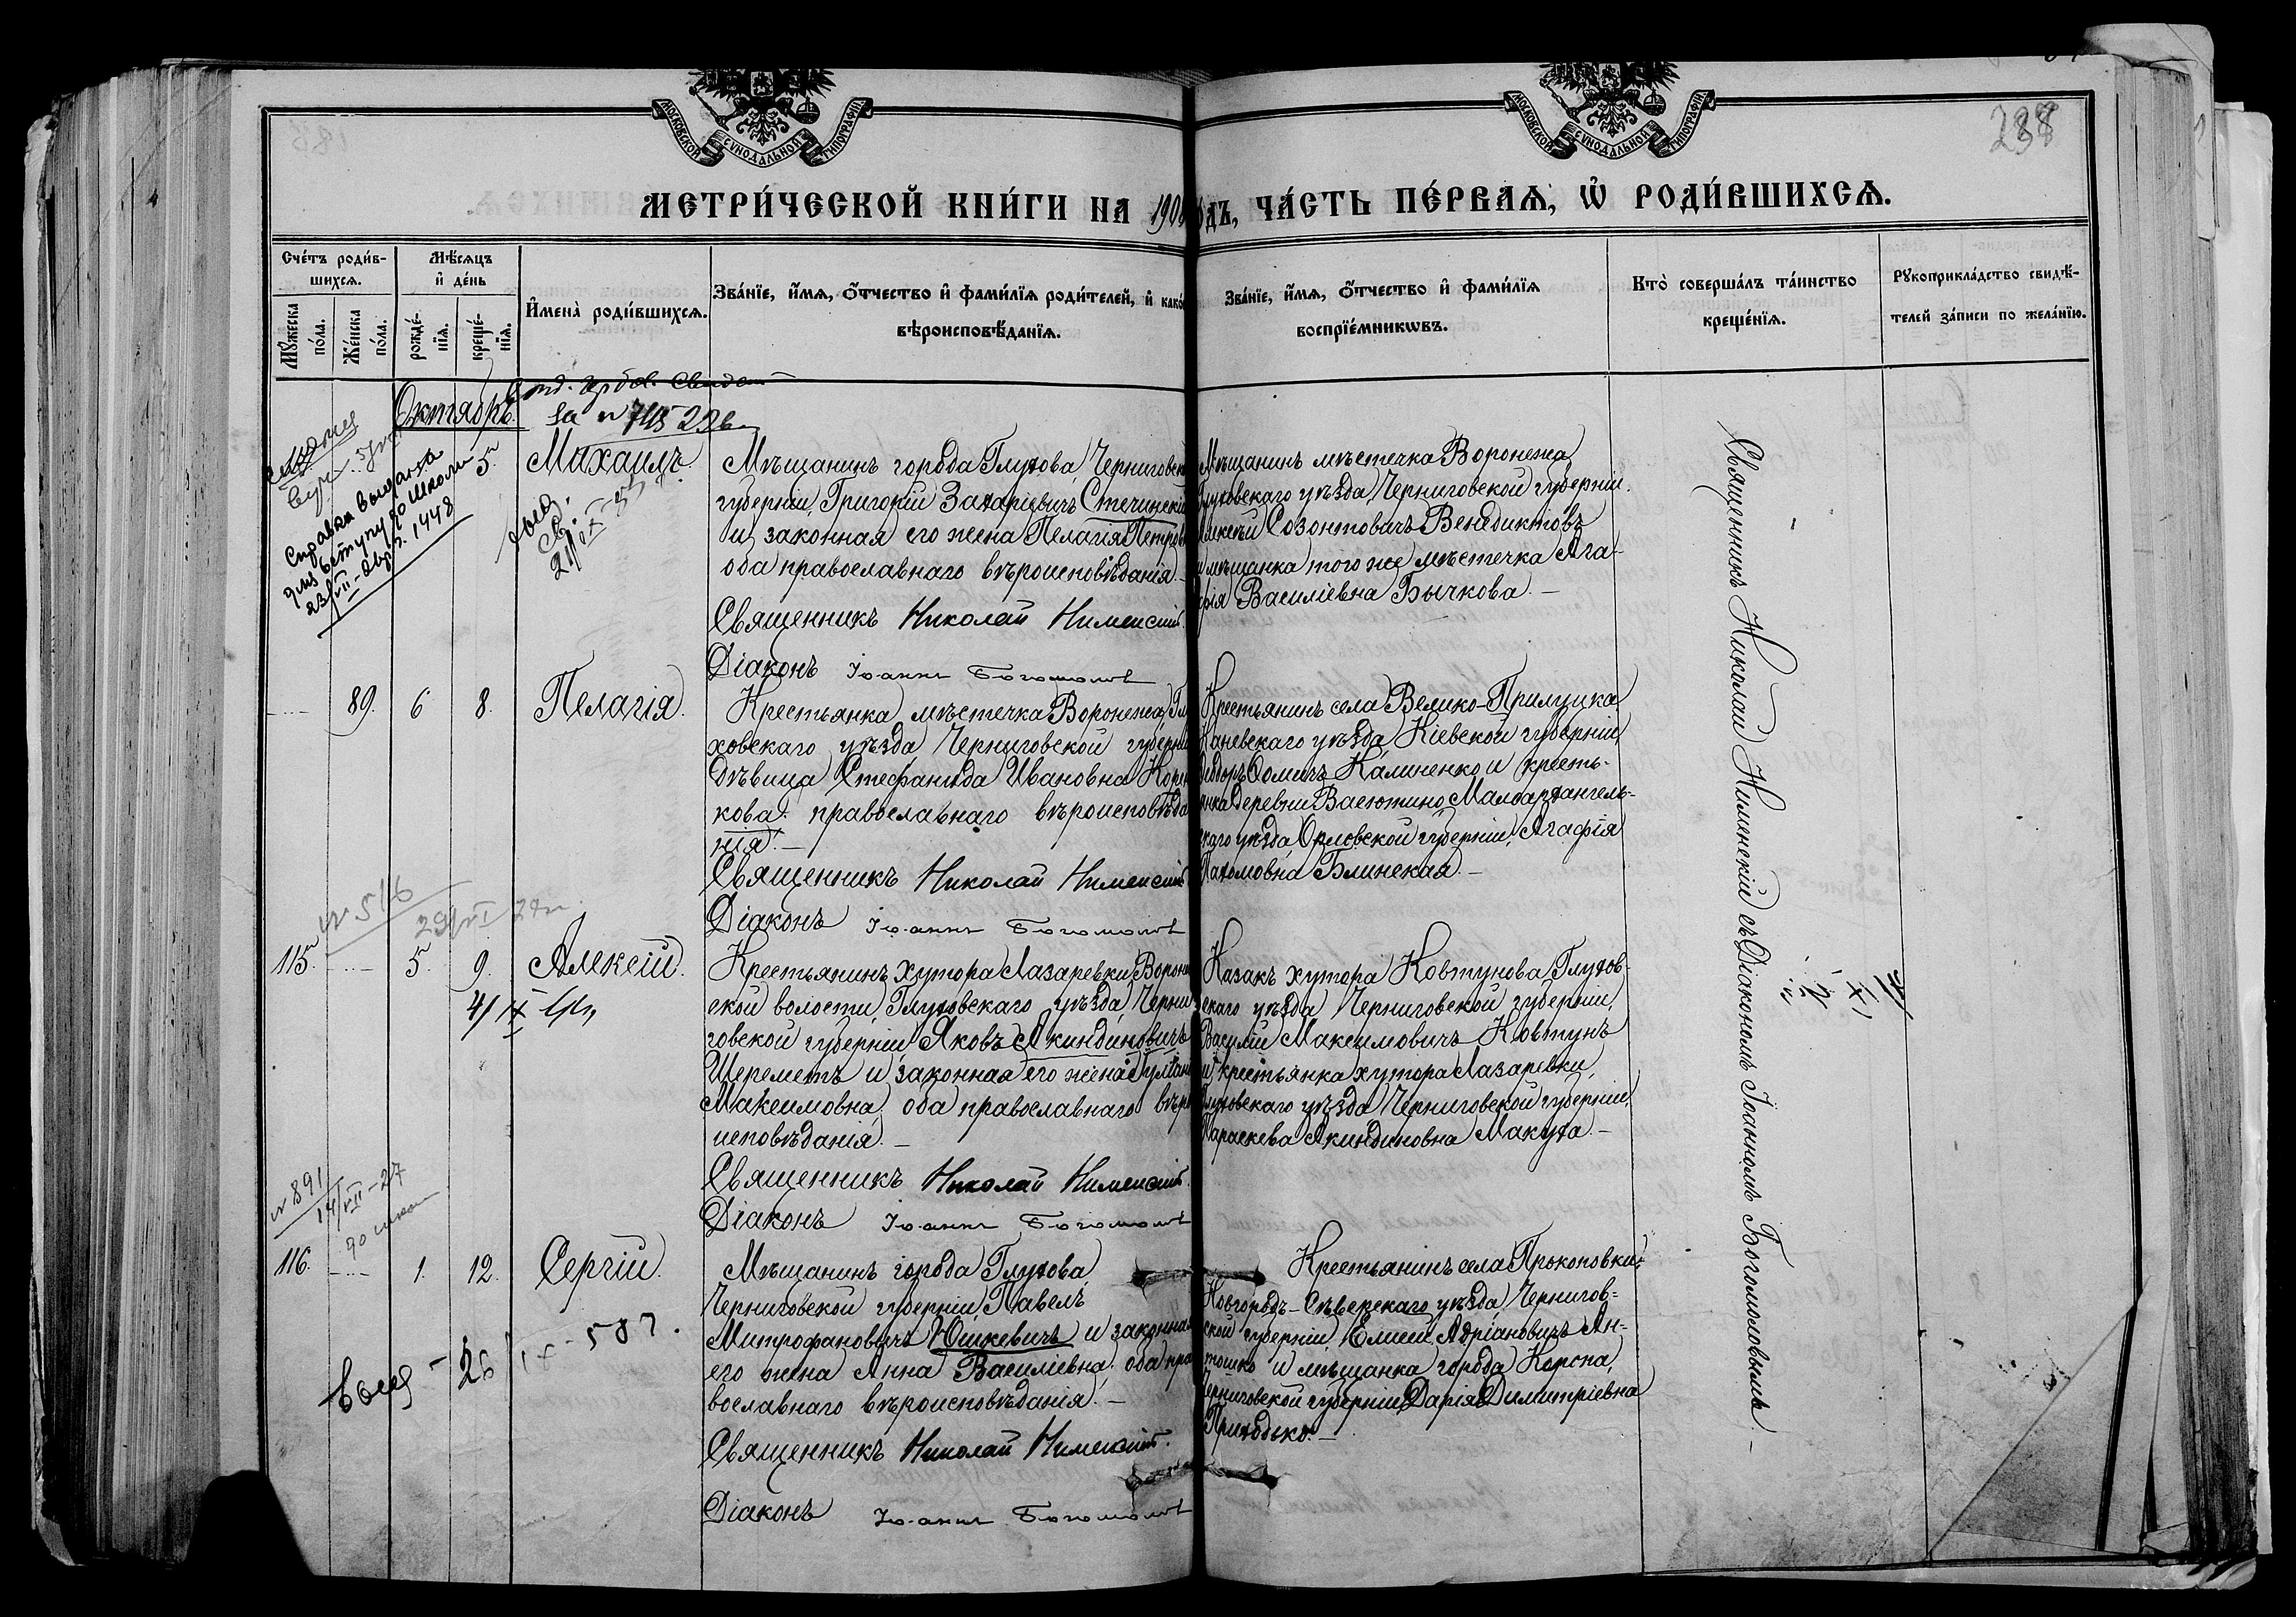 МОСКОВСКОЙ СУНОДАЛЬНОЙ ТИПОГРАФІИ
МОСКОВСКОЙ СУНОДАЛЬНОЙ ТИПОГРАФІИ
238
МЕТРИ́ЧЕСКОЙ КНИ́ГИ НА 190 ДЪ, ЧА́СТЬ ПЕ́РВАЯ, Ѡ҆ РОДИ́ВШИХСЯ.
Сче́тъ роди́в-
шихся.
Му́жеска по́ла.
Же́нска по́ла.
Мѣ́сяцъ
и҆ де́нь
рожде́-
нїя.
креще́-
нїя.
И҆мена̀ роди́вшихся.
Зва́нїе, и҆́мя, ѻ҆́тчество и҆ фами́лїя роди́телей, и҆ како́
вѣроисповѣ́данїя.
Зва́нїе, и҆́мя, ѻ҆́тчество и҆ фами́лїя
воспрїе́мниковъ.
Кто̀ соверша́лъ та́инство
креще́нїя.
Рукоприкла́дство свидѣ́-
телей за́писи по жела́нїю.
Октябрь.
за №
Справка выдана
для вступу до школи
23/VII
5.
Михаилъ.
21/IX-55
Мѣщанинъ города Глухова, Черниговск
губерніи, Григорій Захаріевичъ Стечинскі
и законная его жена Пелагія Петров
оба православнаго вѣроисповѣданія.–
Священникъ Николай Нименскій.
Діаконъ Іоаннъ Богомоловъ
Мѣщанинъ мѣстечка Воронежа,
Глуховскаго уѣзда, Черниговской губерніи.
Алексѣй Созонтовичъ Венедиктовъ
и мѣщанка того же мѣстечка Ага-
фія Василіевна Бычкова.–
89. 6 8. Пелагія.
Крестьянка мѣстечка Воронежа, Глу
ховскаго уѣзда, Черниговской губерніи
дѣвица Стефанида Ивановна
кова. православнаго вѣроисповѣда
нія.–
Священникъ Николай Нименскій
Діаконъ Іоаннъ Богомоловъ
Крестьянинъ села Велико-Прилуцка,
Каневскаго уѣзда, Кіевской губерніи,
Ѳомичъ Калиненко и кресть-
янка деревни Васютино, Малоархангель-
скаго уѣзда, Орловской губерніи, Агафія
Пахомовна Блинская.–
№ 516
29/VI
115. 5. 9. Алексій.
4/IX
Крестьянинъ хутора Лазаревки, Ворон
ской волости, Глуховскаго уѣзда, Черни
говской губерніи, Яковъ Акиндиновичъ
Шереметъ и законная его жена
Максимовна, оба православнаго вѣро
исповѣданія.–
Священникъ Николай Нименскій.
Діаконъ Іоаннъ Богомоловъ
Казакъ хутора Ковтунова, Глухов-
скаго уѣзда, Черниговской губерніи,
Василій Максимовичъ Ковтунъ
и крестьянка хутора Лазаревки,
Глуховскаго уѣзда, Черниговской губерніи,
Параскева Акиндиновна Макуха.–
№ 891
14/VII-27
116. 1. 12. Сергій.
26/IX-58 г.
Мѣщанинъ города Глухова,
Черниговской губерніи Павелъ
Митрофановичъ Юшкевичъ и законная
его жена Анна Василіевна, оба пра
вославнаго вѣроисповѣданія.–
Священникъ Николай Нименскій.
Діаконъ Іоаннъ Богомоловъ
Крестьянинъ села Прокоповки,
Новгородъ-Сѣверскаго уѣзда, Чернигов-
ской губерніи, Елисей Адріановичъ Ан-
тошко и мѣщанка города Коропа,
Черниговской губерніи, Дарія Димитріевна
Приходько.–
Священникъ Николай Нименскій съ Діакономъ Іоанномъ Богомоловымъ.–